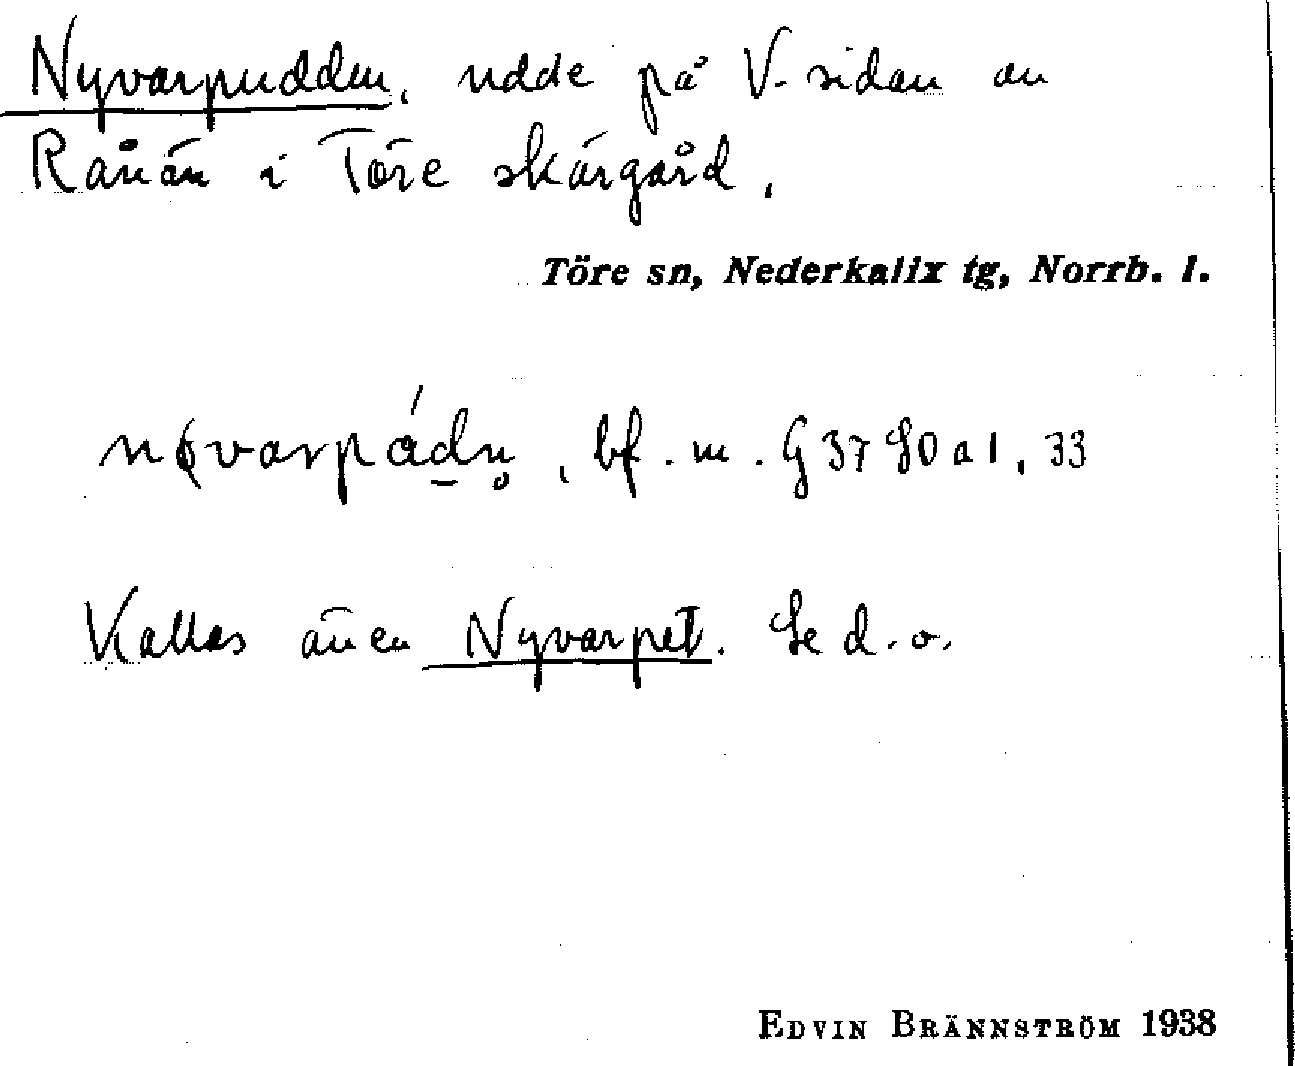 Nyvarpudden, udde på V. sidan av
Rånön i Töre skärgård.
Töre sn, Nederkalix tg, Norrb. l.
bf. m. G 37 80 a 1, 33
Kallas även Nyvarpet. Se d. o.
EDVIN BRÄNNSTRÖM 1938